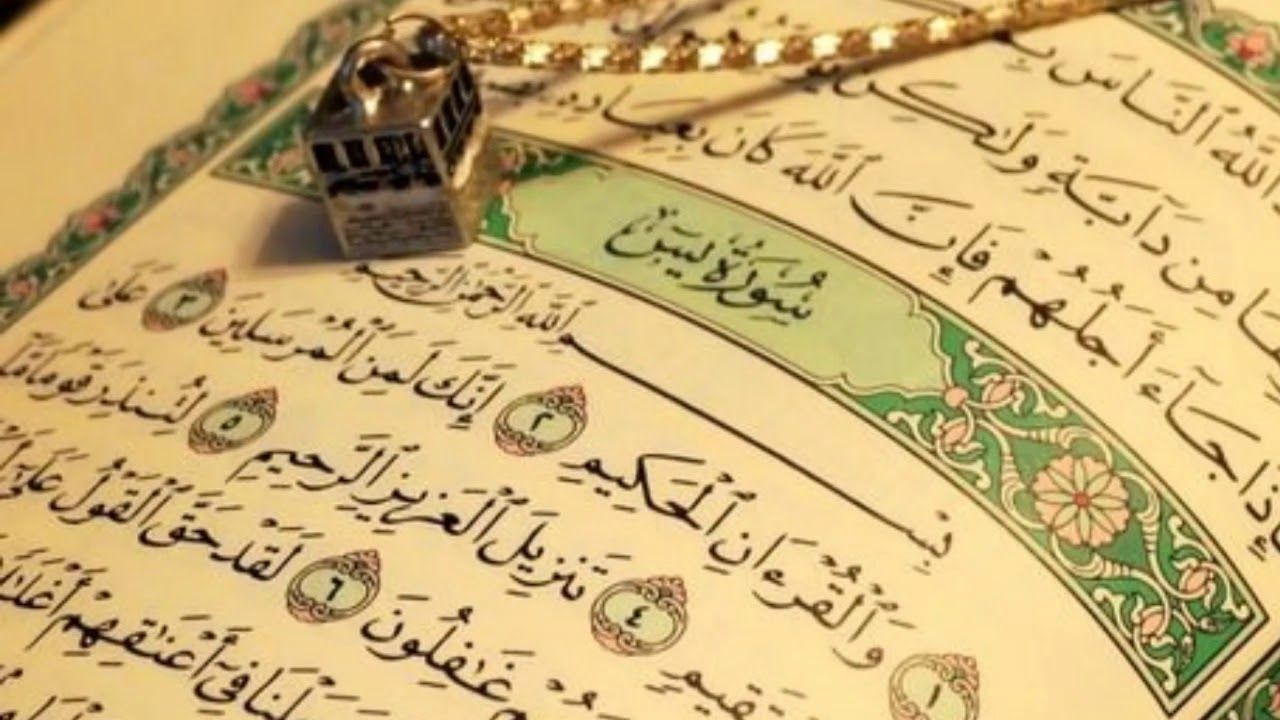 ٱللَّهُ ٱلنَّاسَ
مِن دَآبَّةٍ وَلَـٰكِن
جَآءَ أَجَلُهُمْ فَإِنَّ ٱللَّهَ كَانَ بِعِبَادِهِۦ
سُورَةُ يسٓ
بِسْمِ ٱللَّهِ ٱلرَّحْمَـٰنِ ٱلرَّحِيمِ
١ وَٱلْقُرْءَانِ ٱلْحَكِيمِ ٢ إِنَّكَ لَمِنَ ٱلْمُرْسَلِينَ ٣ عَلَىٰ
٤ تَنزِيلَ ٱلْعَزِيزِ ٱلرَّحِيمِ ٥ لِتُنذِرَ قَوْمًا مَّآ
غَـٰفِلُونَ ٦ لَقَدْ حَقَّ ٱلْقَوْلُ عَلَىٰٓ
فِىٓ أَعْنَـٰقِهِمْ